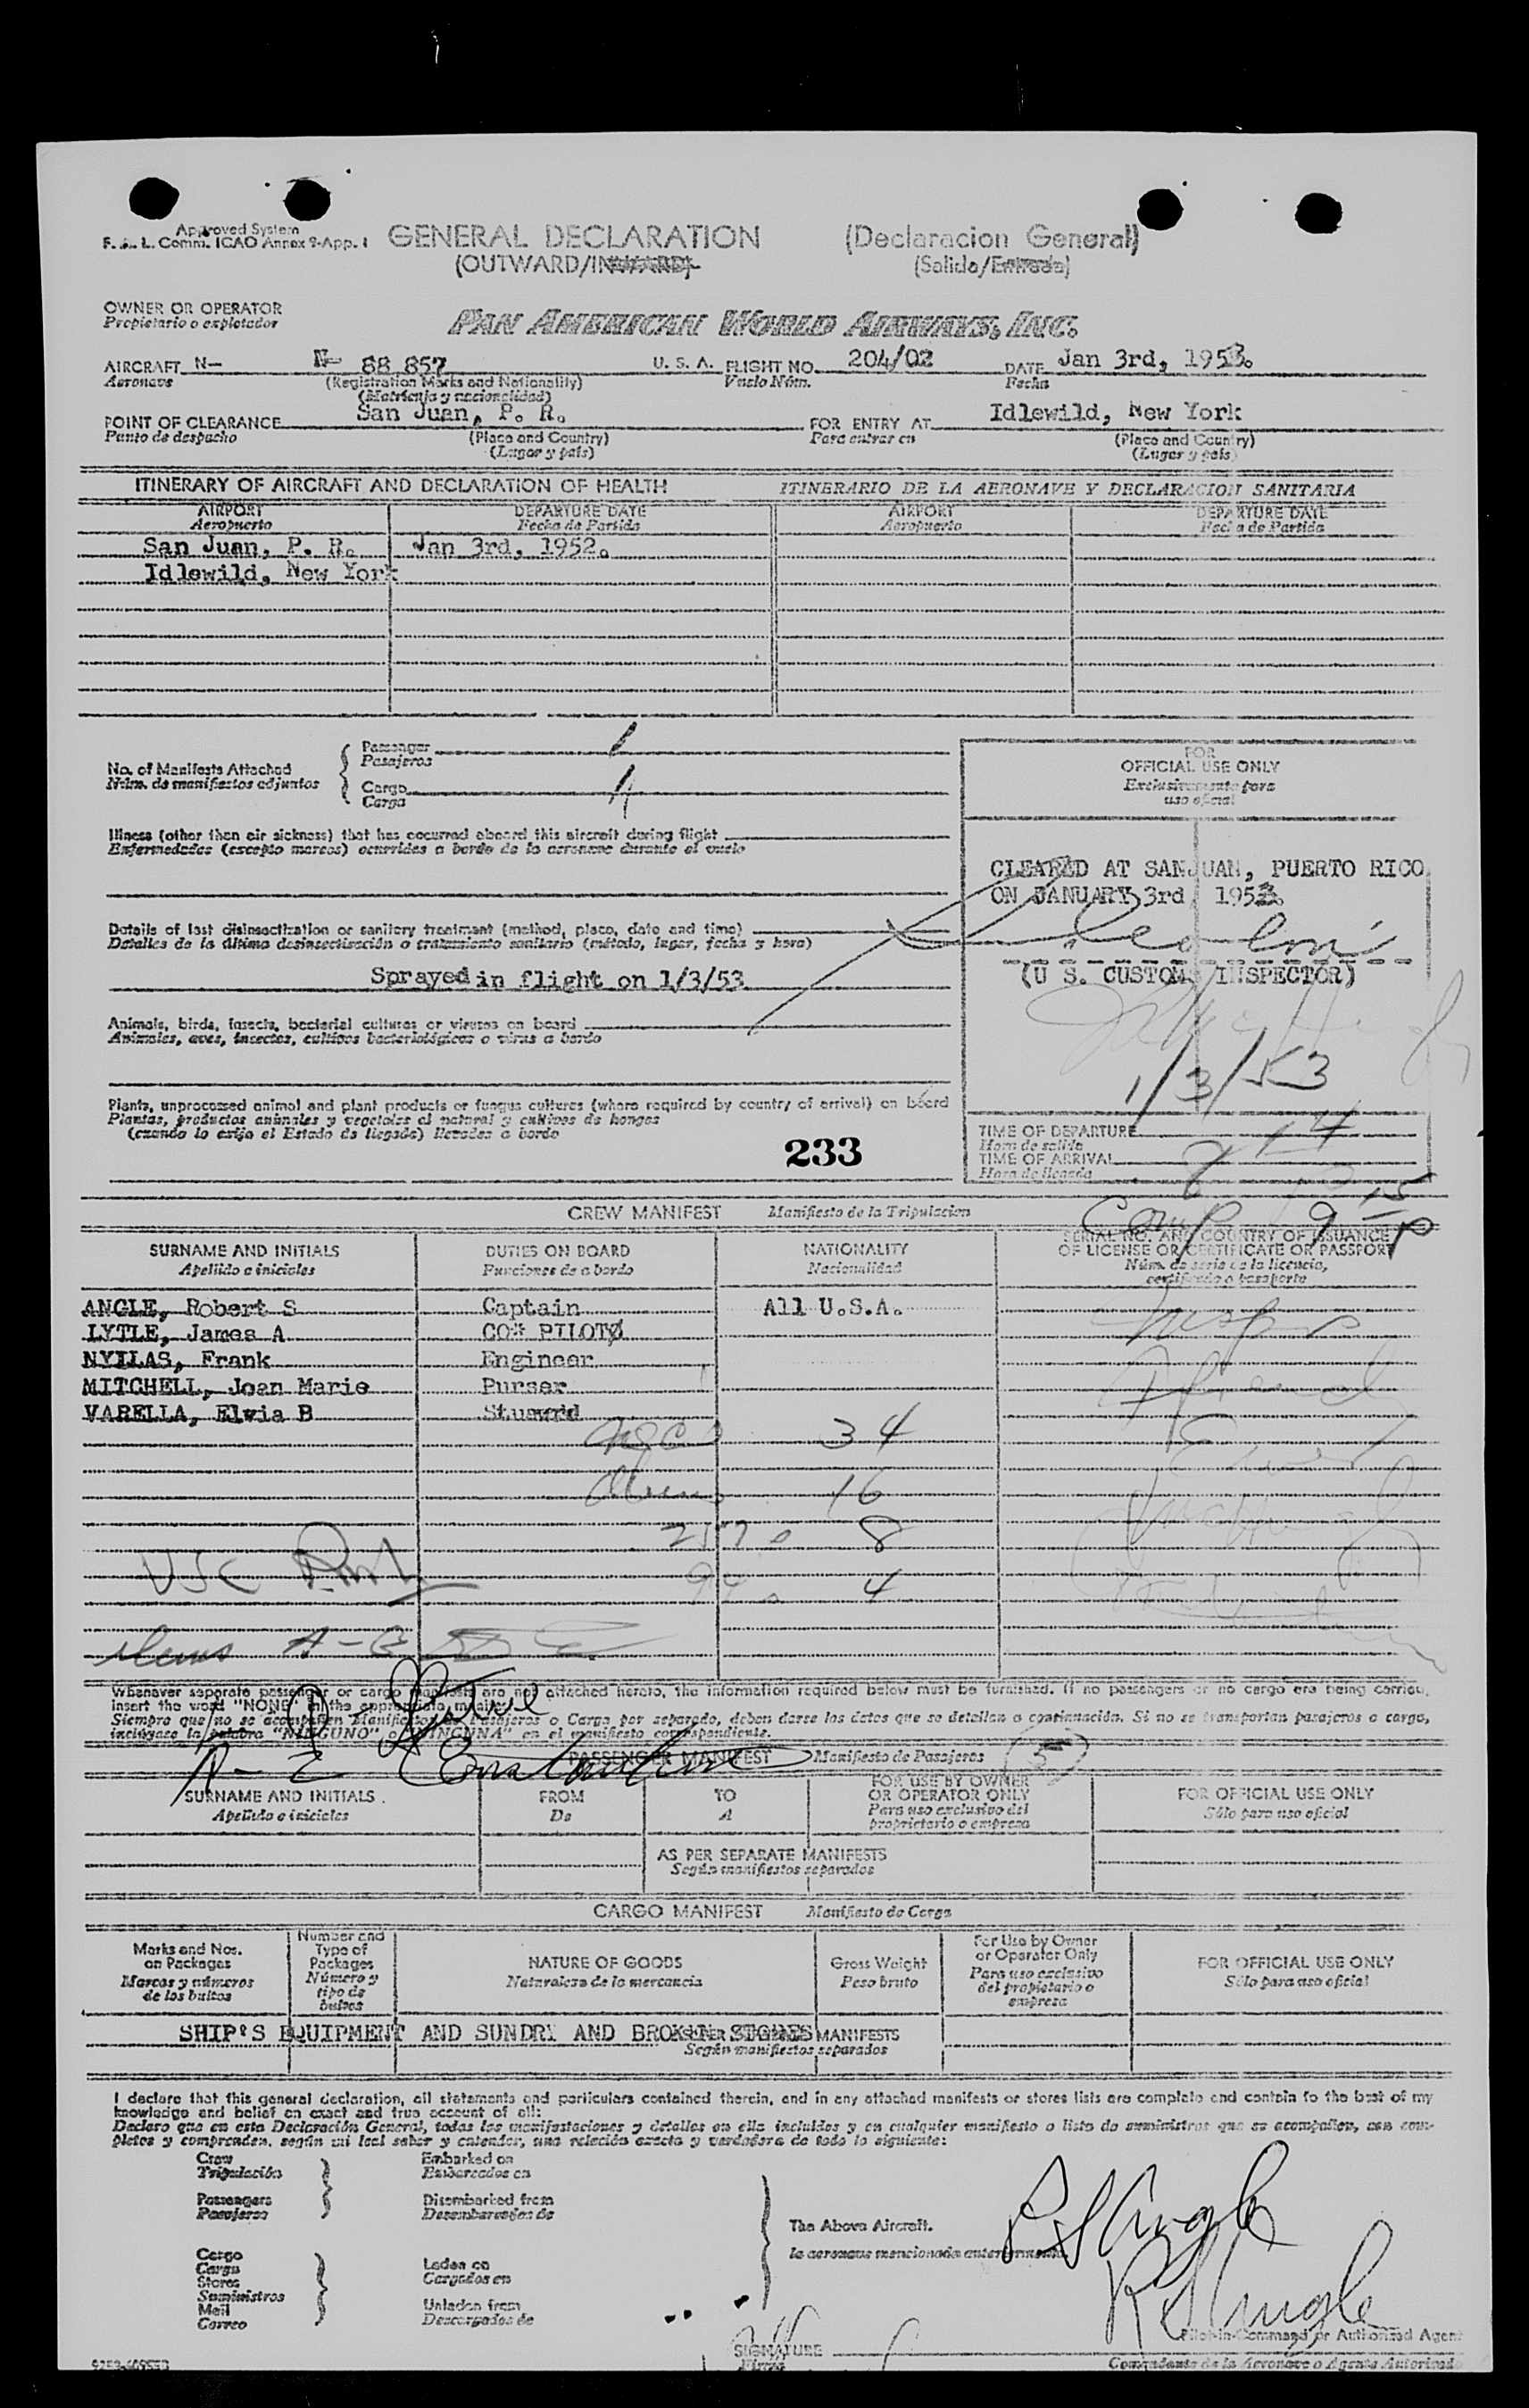 Approved System
F. A. L. Comm. ICAO Annex 9-App. 1
GENERAL DECLARATION (Declaracion General)
(OUTWARD/INWARD) (Salida/Entrada)
OWNER OR OPERATOR
Propietario o explotador
PAN AMERICAN WORLD AIRWAYS, INC.
AIRCRAFT N- N- 88 857 U. S. A. FLIGHT NO. 204/02 DATE Jan 3rd, 1953.
Aeronave (Registration Marks and Nationality) Vuelo Núm. Fecha
(Matricula y nacionalidad)
POINT OF CLEARANCE San Juan, P. R. FOR ENTRY AT Idlewild, New York
Punto de despacho (Place and Country) Para entrar en (Place and Country)
(Lugar y país) (Lugar y país)
ITINERARY OF AIRCRAFT AND DECLARATION OF HEALTH ITINERARIO DE LA AERONAVE Y DECLARACION SANITARIA
AIRPORT DEPARTURE DATE AIRPORT DEPARTURE DATE
Aeropuerto Fecha de Partida Aeropuerto Fecha de Partida
San Juan, P. R. Jan 3rd, 1952.
Idlewild, New York
No. of Manifests Attached
Núm. de manifiestos adjuntos
Passenger 1
Pasajeros
Cargo 4
Carga
Illness (other than air sickness) that has occurred aboard this aircraft during flight
Enfermedades (excepto mareos) ocurridas a bordo de la aeronave durante el vuelo
Details of last disinsectization or sanitary treatment (method, place, date and time)
Detalles de la última desinsectización o tratamiento sanitario (método, lugar, fecha y hora)
Sprayed in flight on 1/3/53
Animals, birds, insects, bacterial cultures or viruses on board
Animales, aves, insectos, cultivos bacteriológicos o virus a bordo
Plants, unprocessed animal and plant products or fungus cultures (where required by country of arrival) on board
Plantas, productos animales y vegetales al natural y cultivos de hongos
(cuando lo exija el Estado de llegada) llevados a bordo
233
FOR
OFFICIAL USE ONLY
Exclusivamente para
uso oficial
CLEARED AT SAN JUAN, PUERTO RICO
ON JANUARY 3rd, 1953
(U S. CUSTOMS INSPECTOR)
1/3/53
TIME OF DEPARTURE
Hora de salida
TIME OF ARRIVAL
Hora de llegada
Comp 9 15 p
CREW MANIFEST Manifiesto de la Tripulacion
SURNAME AND INITIALS DUTIES ON BOARD NATIONALITY SERIAL NO. AND COUNTRY OF ISSUANCE
OF LICENSE OR CERTIFICATE OR PASSPORT
Apellido e iniciales Funciones de a bordo Nacionalidad Núm. de serie de la licencia,
certificado o pasaporte
ANGLE, Robert S Captain All U.S.A.
LYTLE, James A CO* PILOT
NYILAS, Frank Engineer
MITCHELL, Joan Marie Purser
VARELLA, Elvia B Stuward
34
16
8
4
USC
A-
Whenever separate passenger or cargo manifests are not attached hereto, the information required below must be furnished. If no passengers or no cargo are being carried,
insert the word "NONE" in the appropriate manifest.
Siempre que no se acompañen Manifiestos de Pasajeros o Carga por separado, deben darse los datos que se detallan a continuación. Si no se transportan pasajeros o carga,
inclúyase la palabra "NINGUNO" o "NINGUNA" en el manifiesto correspondiente.
PASSENGER MANIFEST Manifiesto de Pasajeros 5
SURNAME AND INITIALS FROM TO FOR USE BY OWNER
OR OPERATOR ONLY FOR OFFICIAL USE ONLY
Apellido e iniciales De A Para uso exclusivo del
propietario o empresa Sólo para uso oficial
AS PER SEPARATE MANIFESTS
Según manifiestos separados
CARGO MANIFEST Manifiesto de Carga
Marks and Nos.
on Packages
Marcas y números
de los bultos
Number and
Type of
Packages
Número y
tipo de
bultos
NATURE OF GOODS
Naturaleza de la mercancia
Gross Weight
Peso bruto
For Use by Owner
or Operator Only
Para uso exclusivo
del propietario o
empresa
FOR OFFICIAL USE ONLY
Sólo para uso oficial
SHIP'S EQUIPMENT AND SUNDRY AND BROKEN STORES MANIFESTS
Según manifiestos separados
I declare that this general declaration, all statements and particulars contained therein, and in any attached manifests or stores lists are complete and contain to the best of my
knowledge and belief an exact and true account of all:
Declaro que en esta Declaración General, todas las manifestaciones y detalles en ella incluídos y en cualquier manifiesto o lista de suministros que se acompañen, son com-
pletos y comprenden, según mi leal saber y entender, una relación exacta y verdadera de todo lo siguiente:
Crew
Tripulación
Passengers
Pasajeros
Embarked on
Embarcados en
Disembarked from
Desembarcados de
Cargo
Carga
Stores
Suministros
Mail
Correo
Laden on
Cargados en
Unladen from
Descargados de
The Above Aircraft.
la aeronave mencionada anteriormente
R S Angle
R S Angle
SIGNATURE
Firma
Pilot-in-Command or Authorized Agent
Comandante de la Aeronave o Agente Autorizado